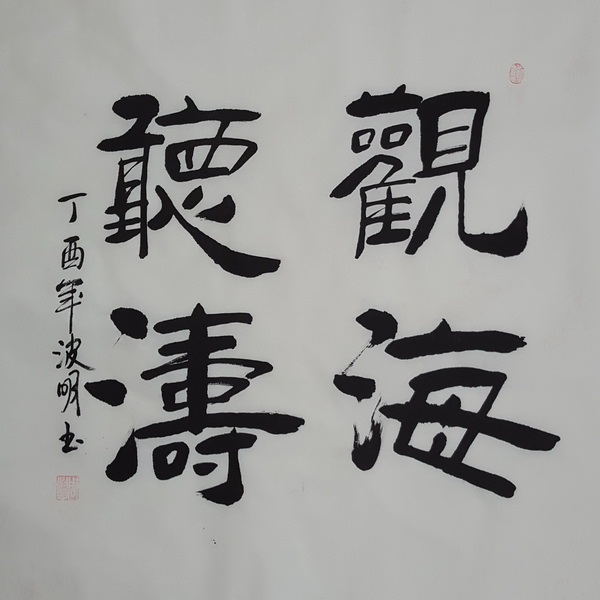 觀海
聽濤
丁酉年波明书